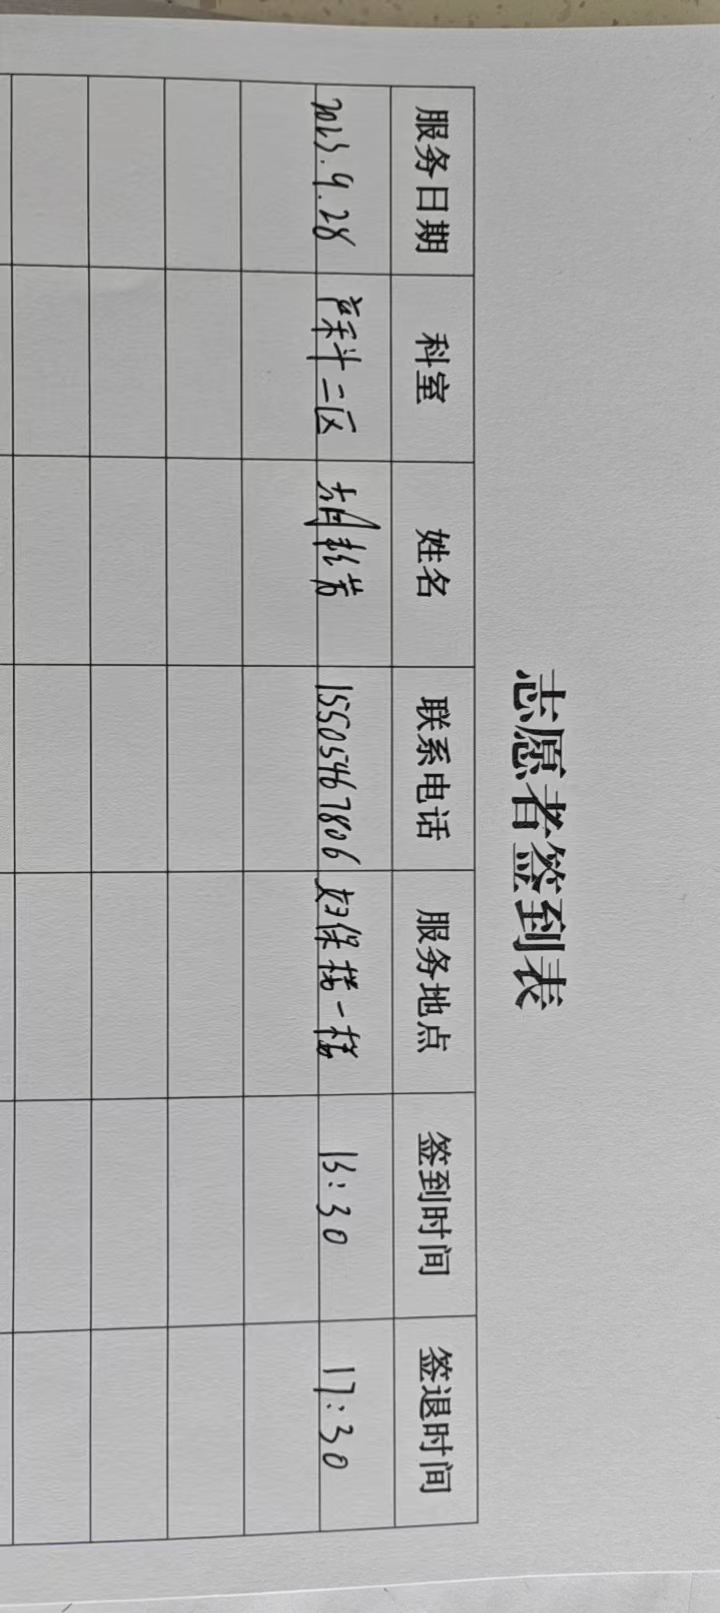 志愿者签到表
服务日期 科室 姓名 联系电话 服务地点 签到时间 签退时间
2025.9.28 产科十二区 15505467806 妇保楼一楼 15:30 17:30